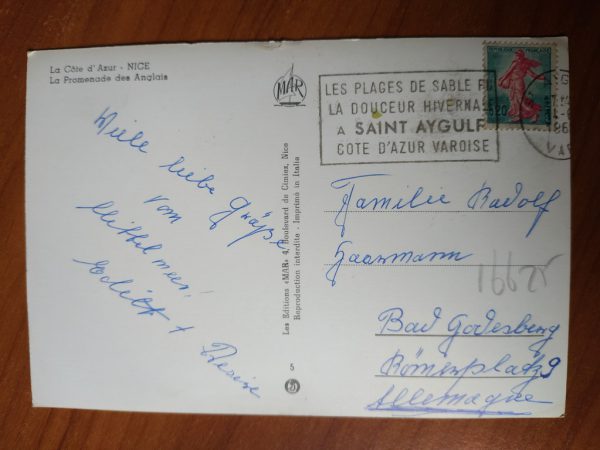 La Côte d'Azur - NICE
La Promenade des Anglais
MAR
LES PLAGES DE SABLE FI
LA DOUCEUR HIVERNALE
A SAINT AYGULF
COTE D'AZUR VAROISE
0,20
VAR
Viele liebe Grüße
vom
Mittelmeer!
Les Editions «MAR» 4, Boulevard de Cimiez, Nice
Reproduction interdite - Imprimé in Italia
5
Familie Radolf
Haarmann
1662r
Bad Godesberg
Römerplatz 9
Allemagne